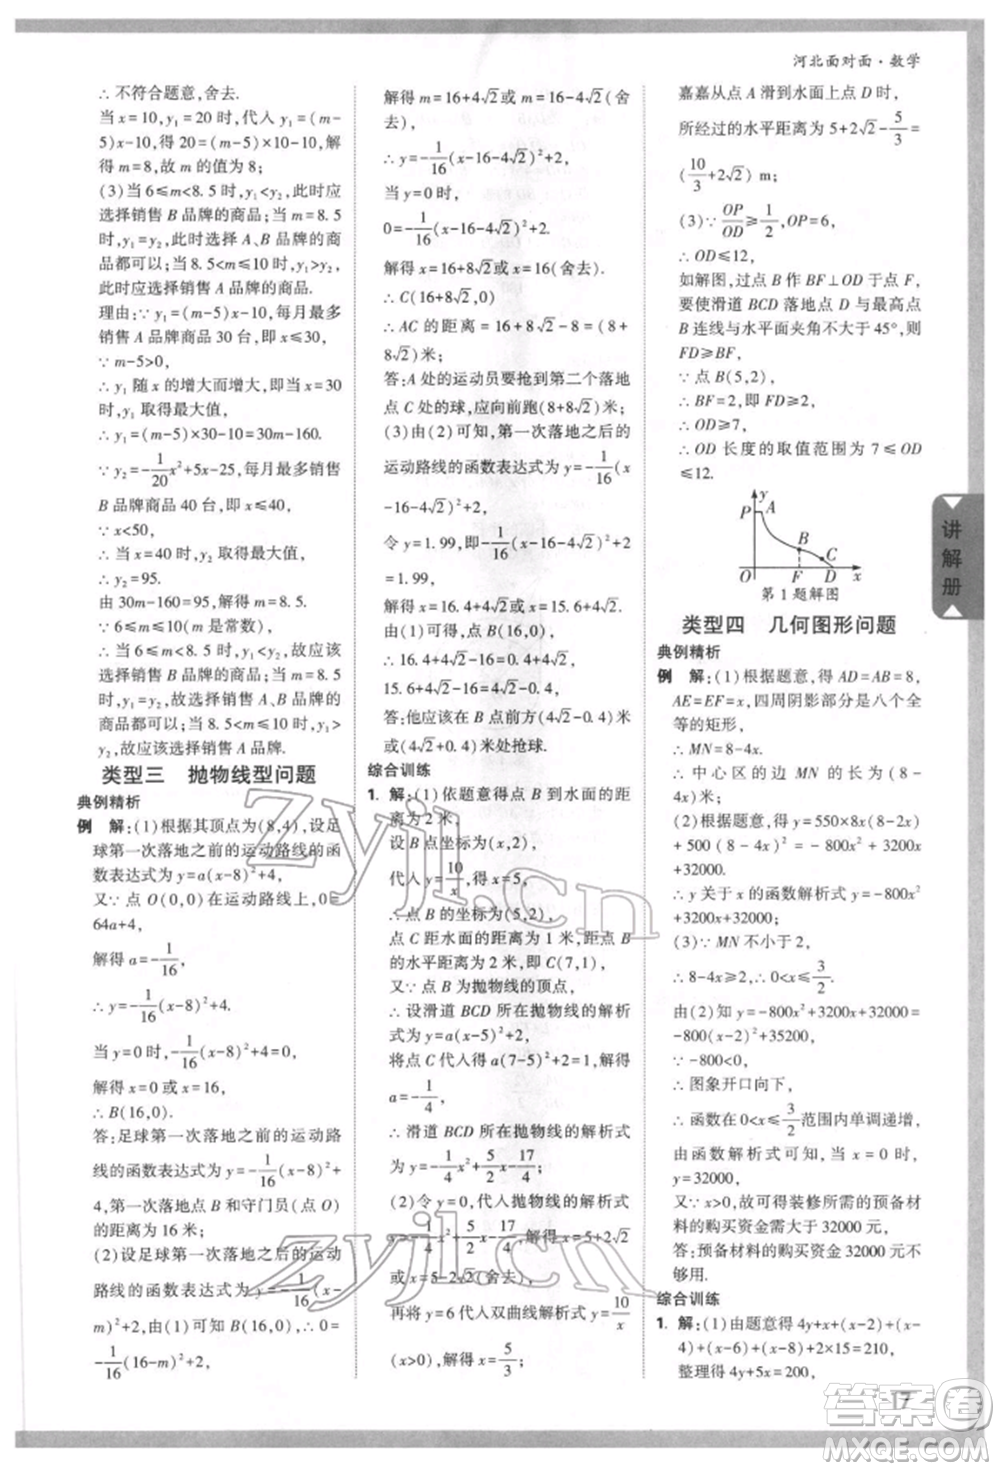 河北面对面·数学
∴ 不符合题意,舍去.
当 x=10,y₁=20 时,代入 y₁=(m-
5)x-10,得 20=(m-5)×10-10,
解得 m=8,故 m 的值为 8;
(3)当 6≤m<8.5 时,y₁<y₂,此时应
选择销售 B 品牌的商品;当 m=8.5
时,y₁=y₂,此时选择销售 A、B 品牌的商
品都可以;当 8.5<m≤10 时,y₁>y₂,
此时应选择销售 A 品牌的商品.
理由:∵ y₁=(m-5)x-10,即 x≤30
A 品牌商品 30 台,
∵ m-5>0,
∴ y₁ 随 x 的增大而增大,即当 x=30
时,y₁ 取得最大值,
∴ y₁=(m-5)×30-10=30m-160.
∵ y₂=-1/20x²+5x-25,每月最多销售
B 品牌商品 40 台,即 x≤40,
∵ x<50,
∴ 当 x=40 时,y₂ 取得最大值,
∴ y₂=95.
由 30m-160=95,解得 m=8.5.
∵ 6≤m≤10(m 是常数),
∴ 当 6≤m<8.5 时,y₁<y₂,故应该
选择销售 B 品牌;
当 m=8.5 时,y₁=y₂,选择两个品牌的
商品都可以;当 8.5<m≤10 时,y₁>
y₂,故应该选择销售 A 品牌.
类型三 抛物线型问题
典例精析
例 解:(1)根据其顶点为(8,4),设足
球第一次落地之前的运动路线的函
数表达式为 y=a(x-8)²+4,
又∵ 点 O(0,0)在运动路线上,0=
64a+4,
解得 a=-1/16,
∴ y=-1/16(x-8)²+4.
当 y=-1/16(x-8)²+4=0 时,
解得 x=0 或 x=16,
∴ B(16,0).
答:足球第一次落地之前的运动路
线的函数表达式为 y=-1/16(x-8)²+
4,第一次落地点 B 和守门员(点 O)
的距离为 16 米;
(2)设足球第一次落地之后的运动
路线的函数表达式为 y=-1/16(x-
m)²+2,由题意,得 0=
-1/16(16-m)²+2,
解得 m=16+4√2或 m=16-4√2(舍
去),
∴ y=-1/16(x-16-4√2)²+2,
当 y=0 时,
0=-1/16(x-16-4√2)²+2.
解得 x=16+8√2或 x=16(舍去).
∴ C(16+8√2,0)
∴ AC 的距离=16+8√2-8=(8+
8√2)米;
答:A 处的运动员要抢到第二个落地
点 C 处的球,应向前跑(8+8√2)米;
(3)由(2)可知,第一次落地之后的
运动路线的函数表达式为 y=-1/16(x
-16-4√2)²+2,
令 y=1.99,即-1/16(x-16-4√2)²+2=
1.99,
解得 x=16.4+4√2或 x=15.6+4√2,
∴ 16.4-16=0.4,
15.6-16=-0.4,
答:他应该在 B 点前方(4√2-0.4)米
到(4√2+0.4)米之间抢球.
综合训练
1. 解:(1)依题意得点 B 到水面的距
离为 2 米,
设 B 点坐标为(x,2),
代入 y=10/x,得 x=5,
∴ 点 B 的坐标为(5,2),
点 C 距水面的距离为 1 米,
∴ 点 C 的坐标为 C(7,1),
又∵ 点 B 为抛物线的顶点,
∴ 设滑道 BCD 所在抛物线的解析
式为 y=a(x-5)²+2,
将点 C 代入得 a(7-5)²+2=1,解得
a=-1/4,
∴ 滑道 BCD 所在抛物线的解析式
为 y=-1/4x²+5/2x-17/4;
(2)令 y=0,代入抛物线的解析式
y=-1/4x²+5/2x-17/4,得 x=5+2√2
或 x=5-2√2(舍去),
再将 y=6 代入双曲线解析式 y=10/x
(x>0),解得 x=5/3,
嘉嘉从点 A 滑到水面上点 D 时,
所经过的水平距离为 5+2√2-5/3=
(10/3+2√2) m;
(3)∵ OP/OD≥1/2,OP=6,
∴ OD≤12,
如解图,过点 B 作 BF⊥OD 于点 F,
要使滑道 BCD 落地点 D 与最高点
B 连线与水平面夹角不大于 45°,则
FD≥BF,
∵ 点 B(5,2),
∴ BF=2,即 FD≥2,
∴ OD≥7,
∴ OD 长度的取值范围为 7≤OD
≤12.
y
P A
B
C
O F D x
第 1 题解图
类型四 几何图形问题
典例精析
例 解:(1)根据题意,得 AD=AB=8,
AE=EF=x,四周阴影部分是八个全
等的矩形,
∴ MN=8-4x.
∴ 中心区的边 MN 的长为(8-
4x)米;
(2)根据题意,得 y=550×8x(8-2x)
+500(8-4x)²=-800x²+3200x+
32000.
∴ y 关于 x 的函数解析式 y=-800x²
+3200x+32000;
(3)∵ MN 不小于 2,
∴ 8-4x≥2,∴ 0<x≤3/2,
由(2)知 y=-800x²+3200x+32000=
-800(x-2)²+35200,
∵ -800<0,
∴ 图象开口向下,
∴ 函数在 0<x≤3/2范围内单调递增,
由函数解析式可知,当 x=0 时,
y=32000,
又∵ x>0,故可得装修所需的预备材
料的购买资金需大于 32000 元,
答:预备材料的购买资金 32000 元不
够用.
综合训练
1. 解:(1)由题意得 4y+x+(x-2)+(x-
4)+(x-6)+(x-8)+2×15=210,
整理得 4y+5x=200,
讲解册
17
zyjl.cn
zyjl.cn
答案圈
MXQE.COM